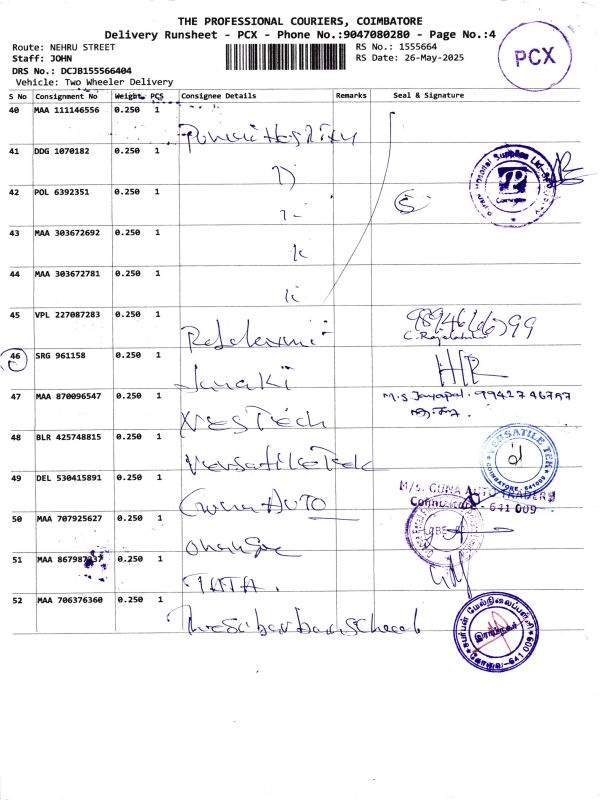 THE PROFESSIONAL COURIERS, COIMBATORE
Delivery Runsheet - PCX - Phone No.:9047080280 - Page No.:4
Route: NEHRU STREET
Staff: JOHN
DRS No.: DCJB155566404
Vehicle: Two Wheeler Delivery
RS No.: 1555664
RS Date: 26-May-2025
PCX
S No Consignment No Weight PCS Consignee Details Remarks Seal & Signature
40 MAA 111146556 0.250 1
41 DDG 1070182 0.250 1
42 POL 6392351 0.250 1
5
43 MAA 303672692 0.250 1
44 MAA 303672781 0.250 1
45 VPL 227087283 0.250 1
46 SRG 961158 0.250 1 Janaki
47 MAA 870096547 0.250 1
M.S. Jayapal. 9942746797
48 BLR 425748815 0.250 1 Versatile Tek
VERSATILE TEK
COIMBATORE - 641009
49 DEL 530415891 0.250 1 Guna AUTO
M/s. GUNA AUTO TRADERS
Coimbatore - 641 009
50 MAA 707925627 0.250 1
51 MAA 867987 0.250 1 TATA
52 MAA 706376360 0.250 1